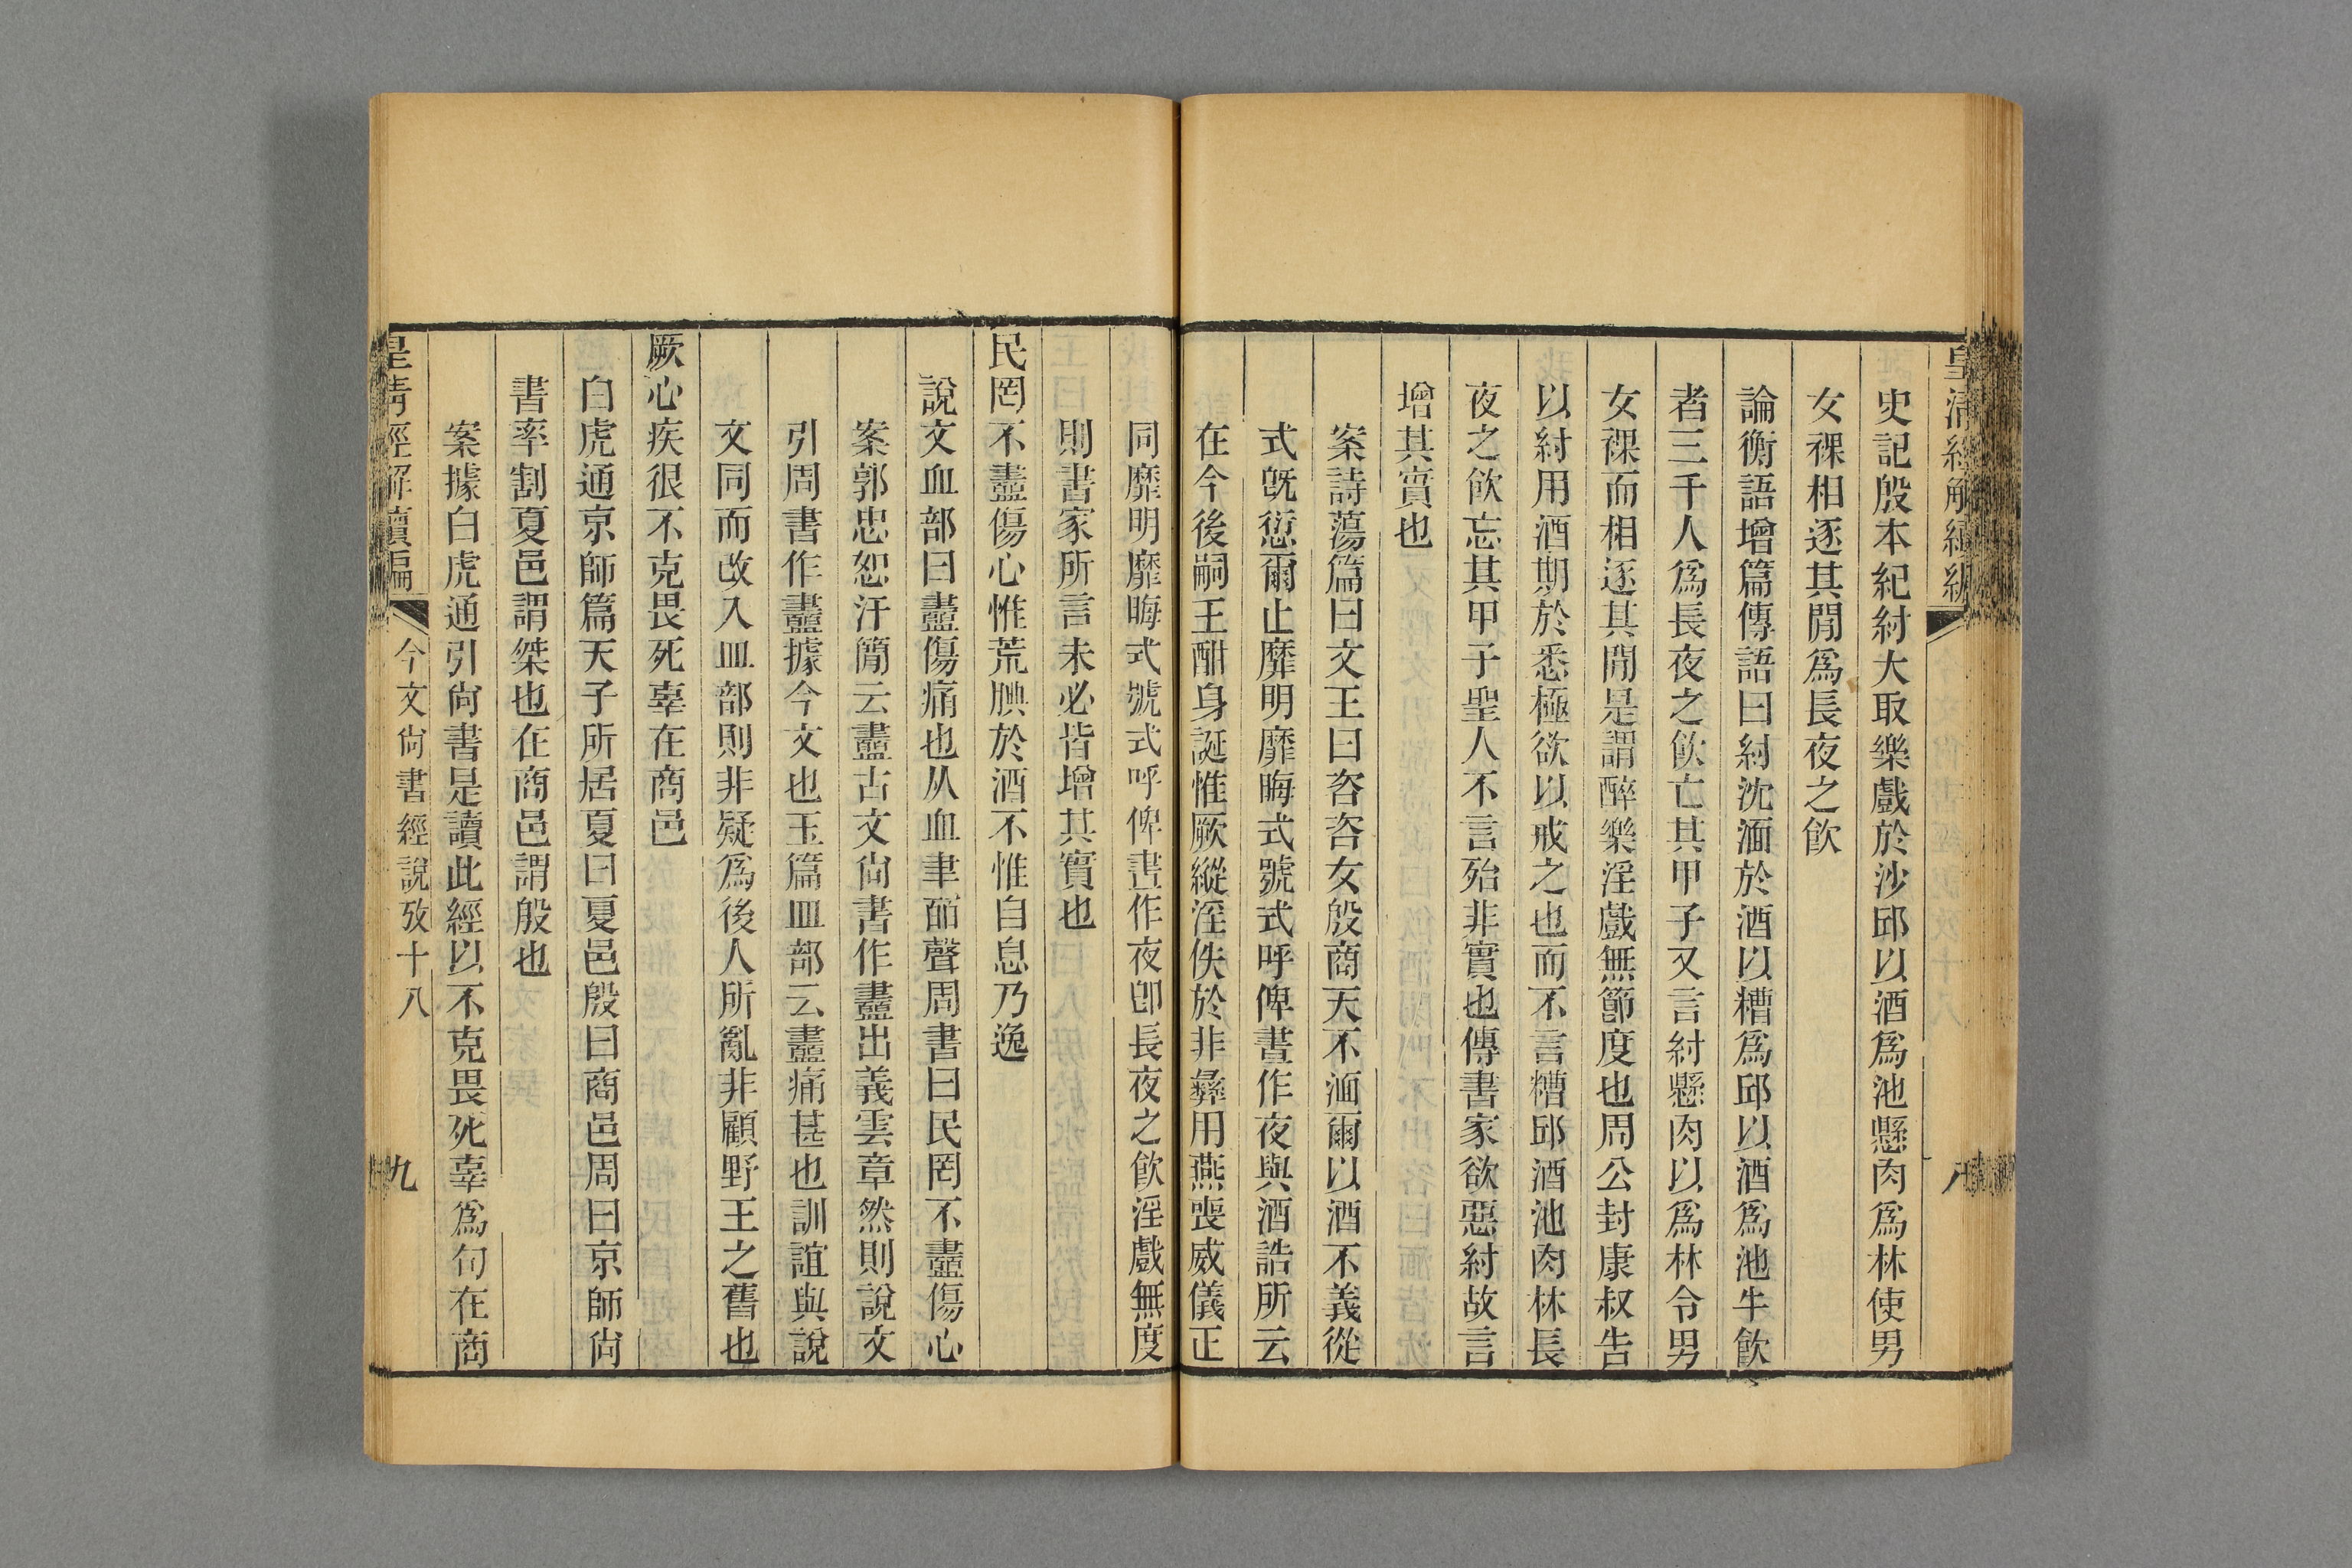 皇清經解續編
八
史記殷本紀紂大取樂戲於沙邱以酒爲池懸肉爲林使男
女裸相逐其閒爲長夜之飮
論衡語增篇傳語曰紂沈湎於酒以糟爲邱以酒爲池牛飮
者三千人爲長夜之飮亡其甲子又言紂懸肉以爲林令男
女裸而相逐其閒是謂醉樂淫戲無節度也周公封康叔告
以紂用酒期於悉極欲以戒之也而不言糟邱酒池肉林長
夜之飮忘其甲子聖人不言殆非實也傳書家欲惡紂故言
增其實也
案詩蕩篇曰文王曰咨咨女殷商天不湎爾以酒不義從
式旣愆爾止靡明靡晦式號式呼俾晝作夜與酒誥所云
在今後嗣王酣身誕惟厥縱淫佚於非彝用燕喪威儀正
同靡明靡晦式號式呼俾晝作夜卽長夜之飮淫戲無度
則書家所言未必皆增其實也
民罔不衋傷心惟荒腆於酒不惟自息乃逸
說文血部曰衋傷痛也从血聿皕聲周書曰民罔不衋傷心
案郭忠恕汗簡云衋古文尙書作衋出義雲章然則說文
引周書作衋據今文也玉篇皿部云衋痛甚也訓誼與說
文同而改入皿部則非疑爲後人所亂非顧野王之舊也
厥心疾很不克畏死辜在商邑
白虎通京師篇天子所居夏曰夏邑殷曰商邑周曰京師尙
書率割夏邑謂桀也在商邑謂殷也
案據白虎通引尙書是讀此經以不克畏死辜爲句在商
皇清經解續編
今文尙書經說攷十八
九